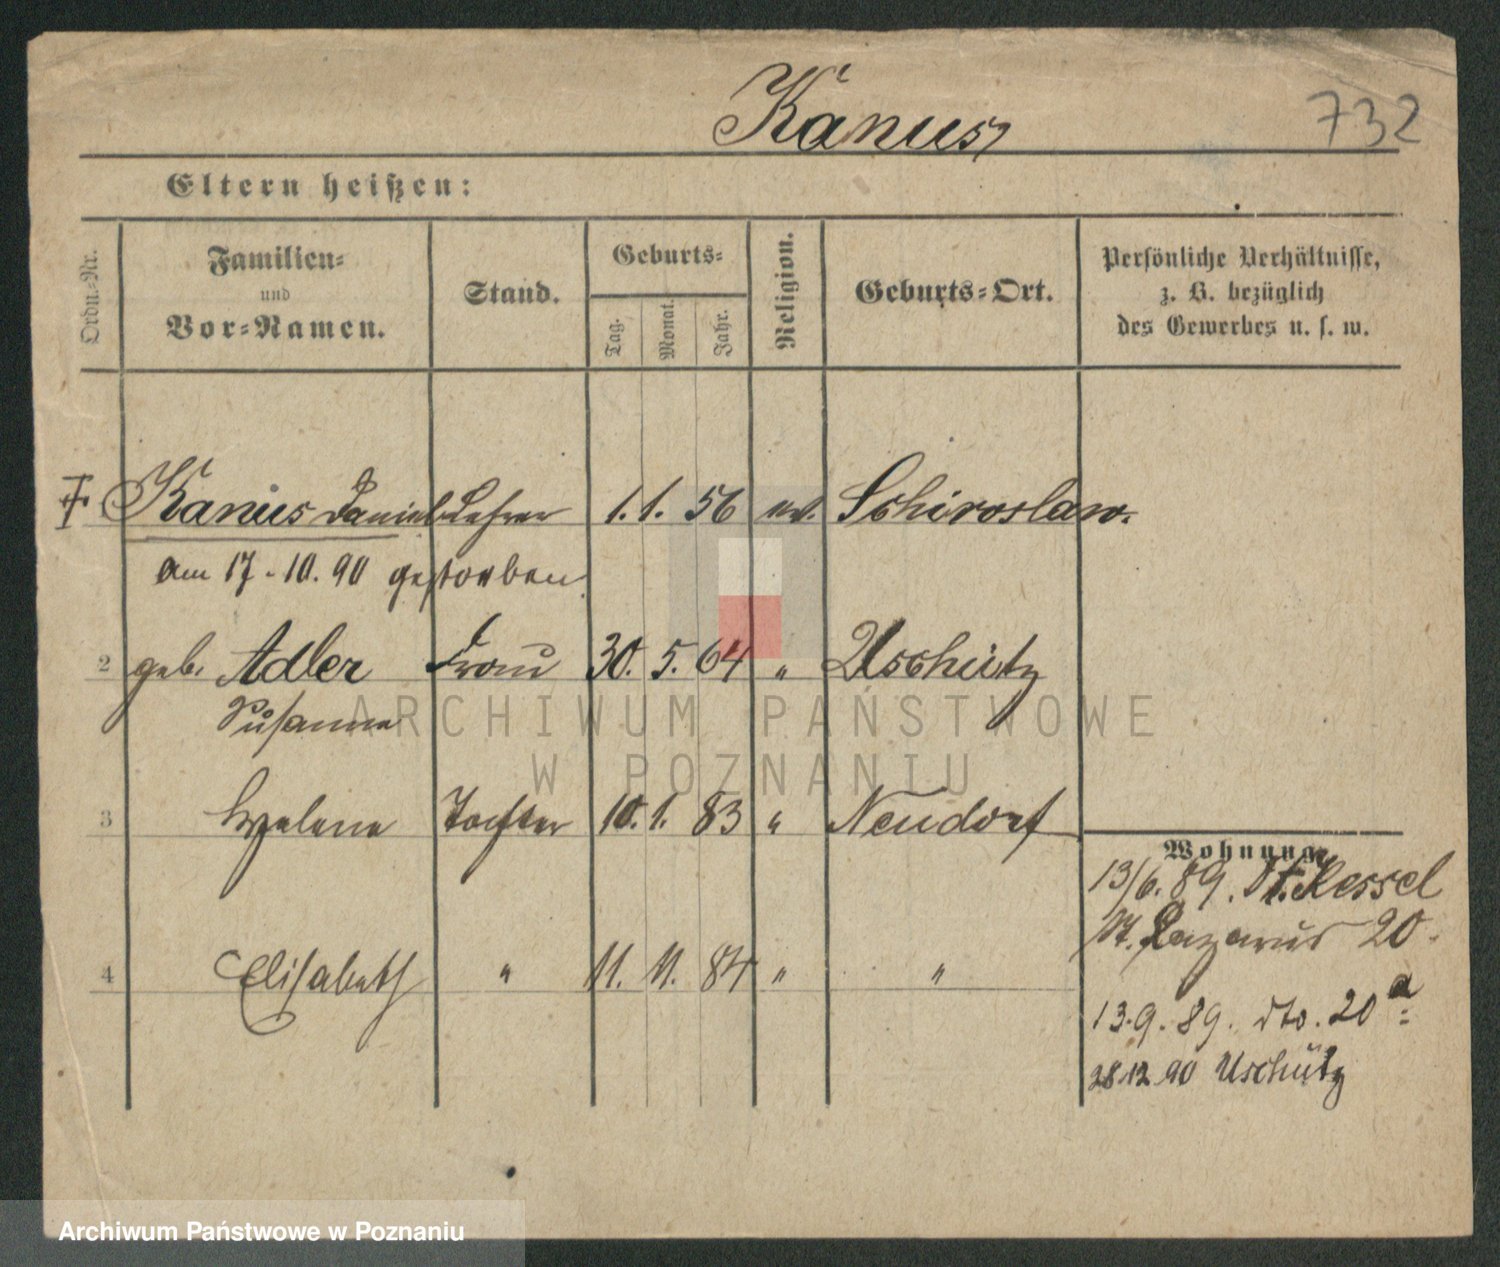 Kanus
732
Eltern heißen:
Ordn.-Nr.
Familien-
und
Vor-Namen.
Stand.
Geburts-
Tag.
Monat.
Jahr.
Religion.
Geburts-Ort.
Persönliche Verhältnisse,
z. B. bezüglich
des Gewerbes u. s. w.
Kanus Daniel Lehrer 1. 1. 56 ev. Schiroslaw.
am 17-10.90 gestorben
2 geb. Adler Frau 30. 5. 64 " Uschütz
Susanna
ARCHIWUM PAŃSTWOWE
W POZNANIU
3 Helene Tochter 10. 1. 83 " Neudorf
4 Elisabeth " 11. 11. 84 " "
Wohnung
13/6. 89. Kessel
St. Lazarus 20.
13.9. 89. dto. 20a
28.12.90 Uschütz
Archiwum Państwowe w Poznaniu